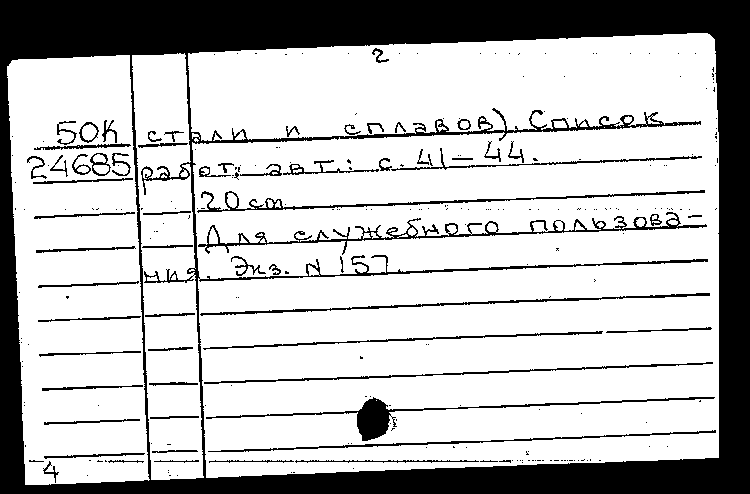 2
50К стали и сплавов). Список
24685 работ, авт.: с. 41-44.
20 cm
Для служебного пользова-
ния. Экз. N 157.
4